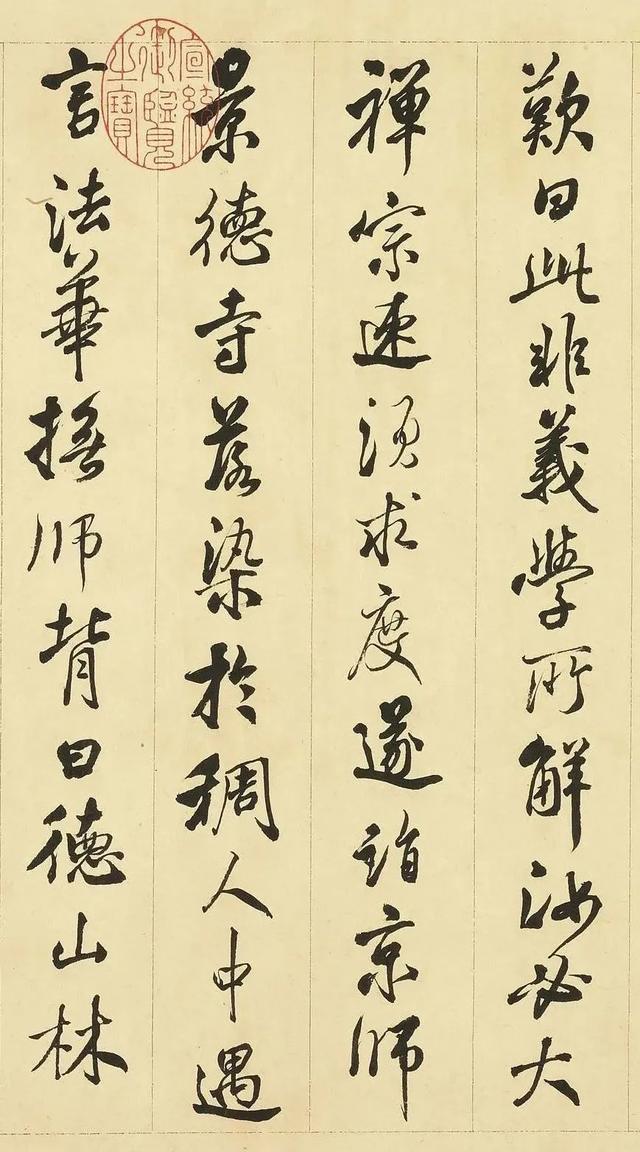 歎曰此非義學所解汝必大
禪宗速須求度遂詣京師
景德寺落染於稠人中遇
言法華撫師背曰德山林
宣統御覽之寶